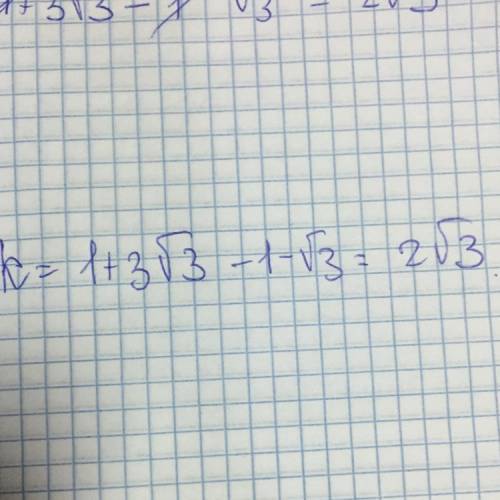 1+3√3-1 √3 = 2√3
k = 1+3√3 -1-√3 = 2√3.